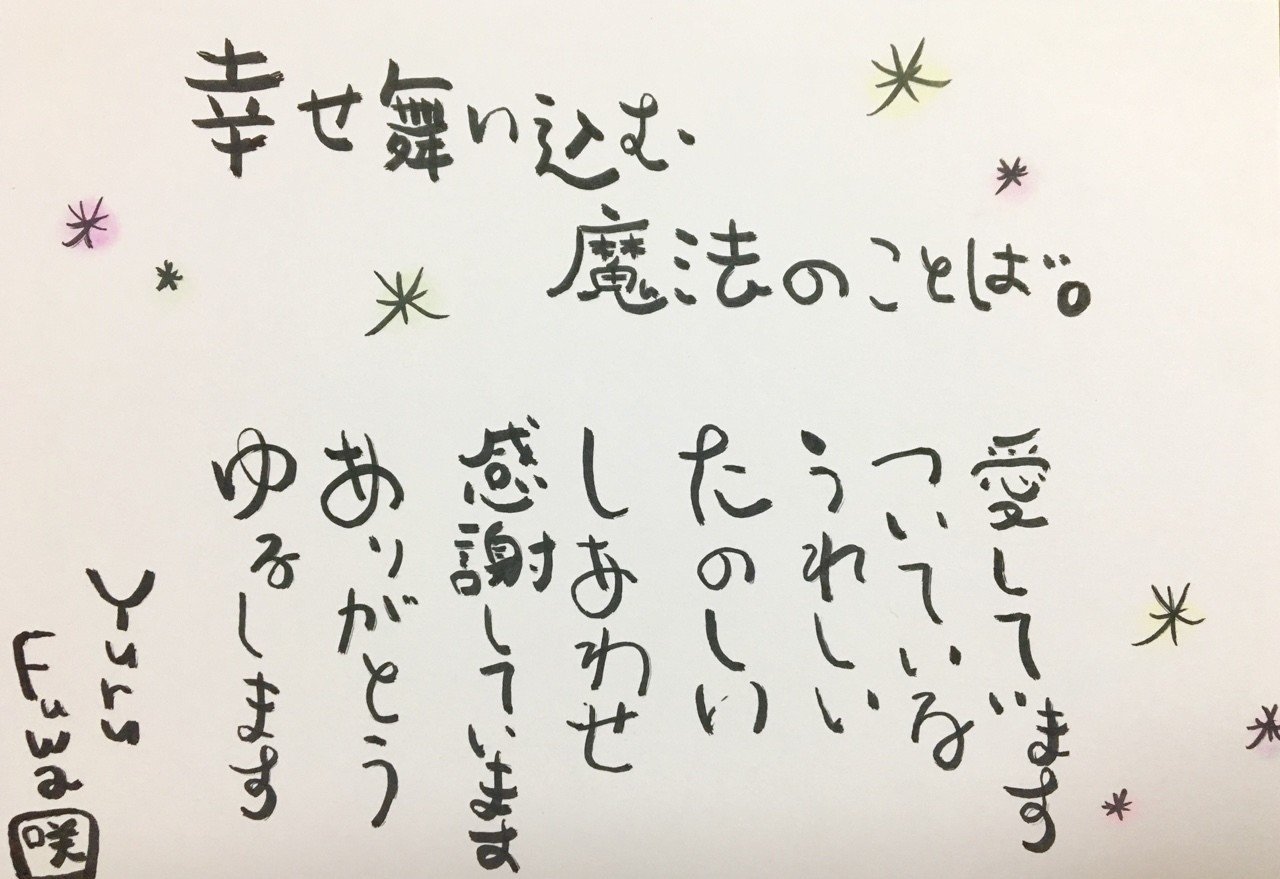 幸せ舞い込む
魔法のことば。
愛しています
ついている
うれしい
たのしい
しあわせ
感謝しています
ありがとう
ゆるします
Yuru
Fuwa
咲